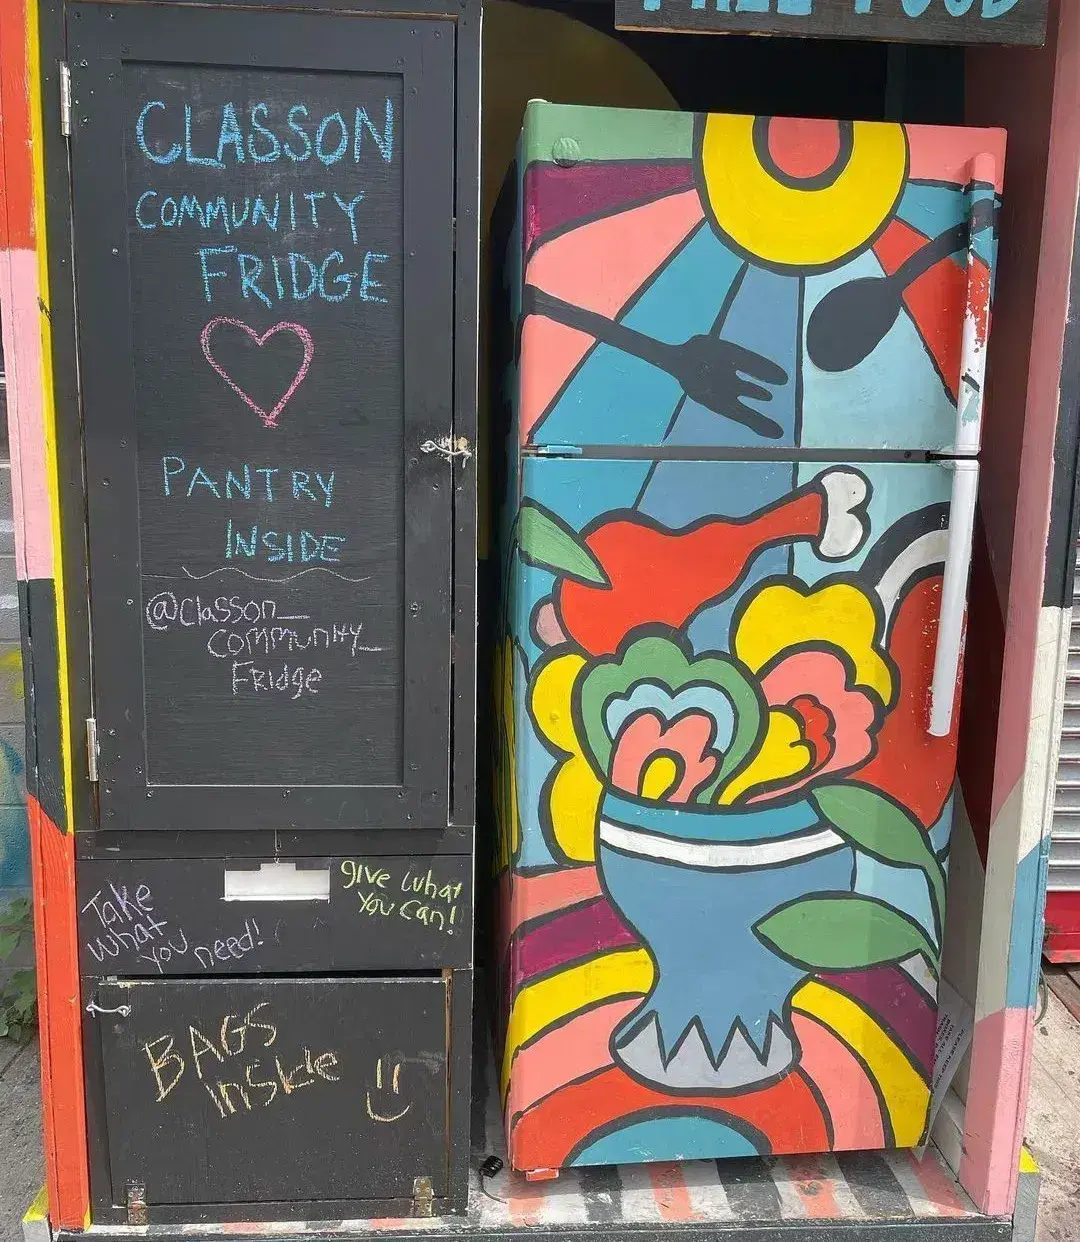 FREE FOOD
CLASSON
COMMUNITY
FRIDGE
PANTRY
INSIDE
@classon_
community_
Fridge
Take
what
you need!
give what
you can!
BAGS
inside
PLEASE KEEP THE